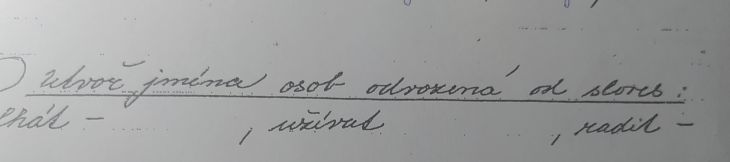 Utvoř jména osob odvozená od sloves:
lhát - , užívat , radit -